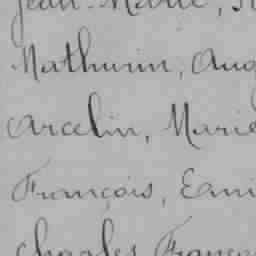 Jean-Marie,
Mathurin, Aug
Arcelin, Marie
François, Emi
Charles, Franço